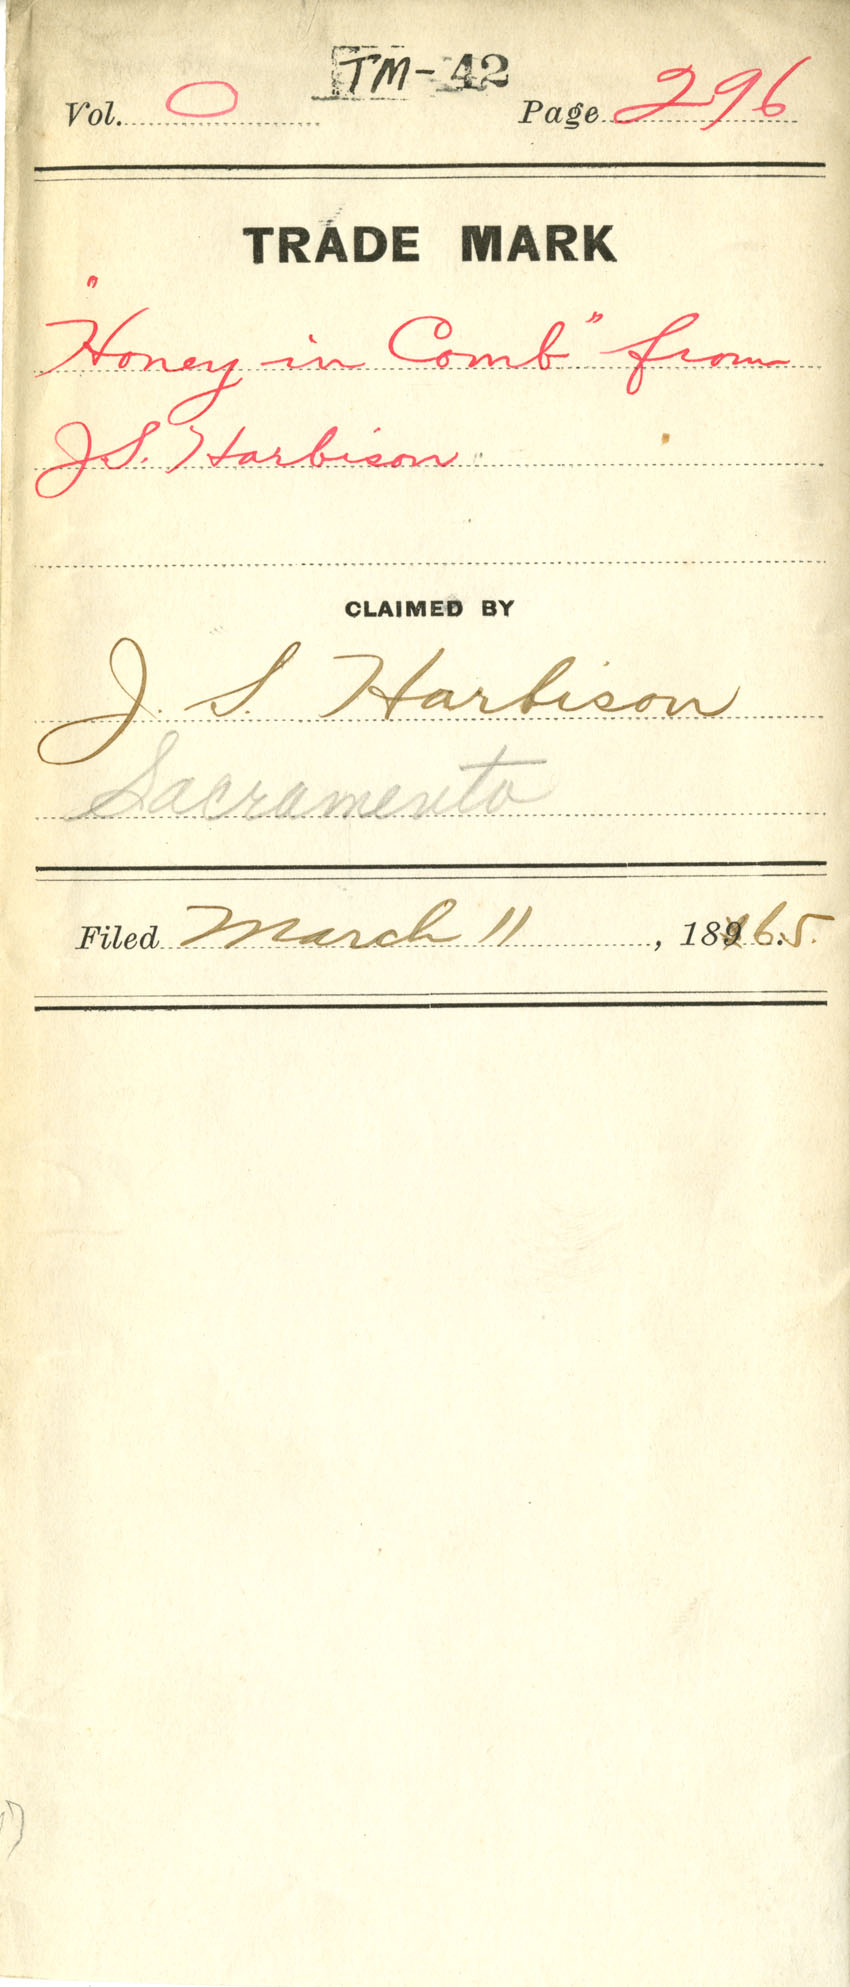 TM-42
Vol. 0 Page 296
TRADE MARK
"Honey in Comb" from
J.S. Harbison
CLAIMED BY
J. S. Harbison
Sacramento
Filed March 11, 1865.